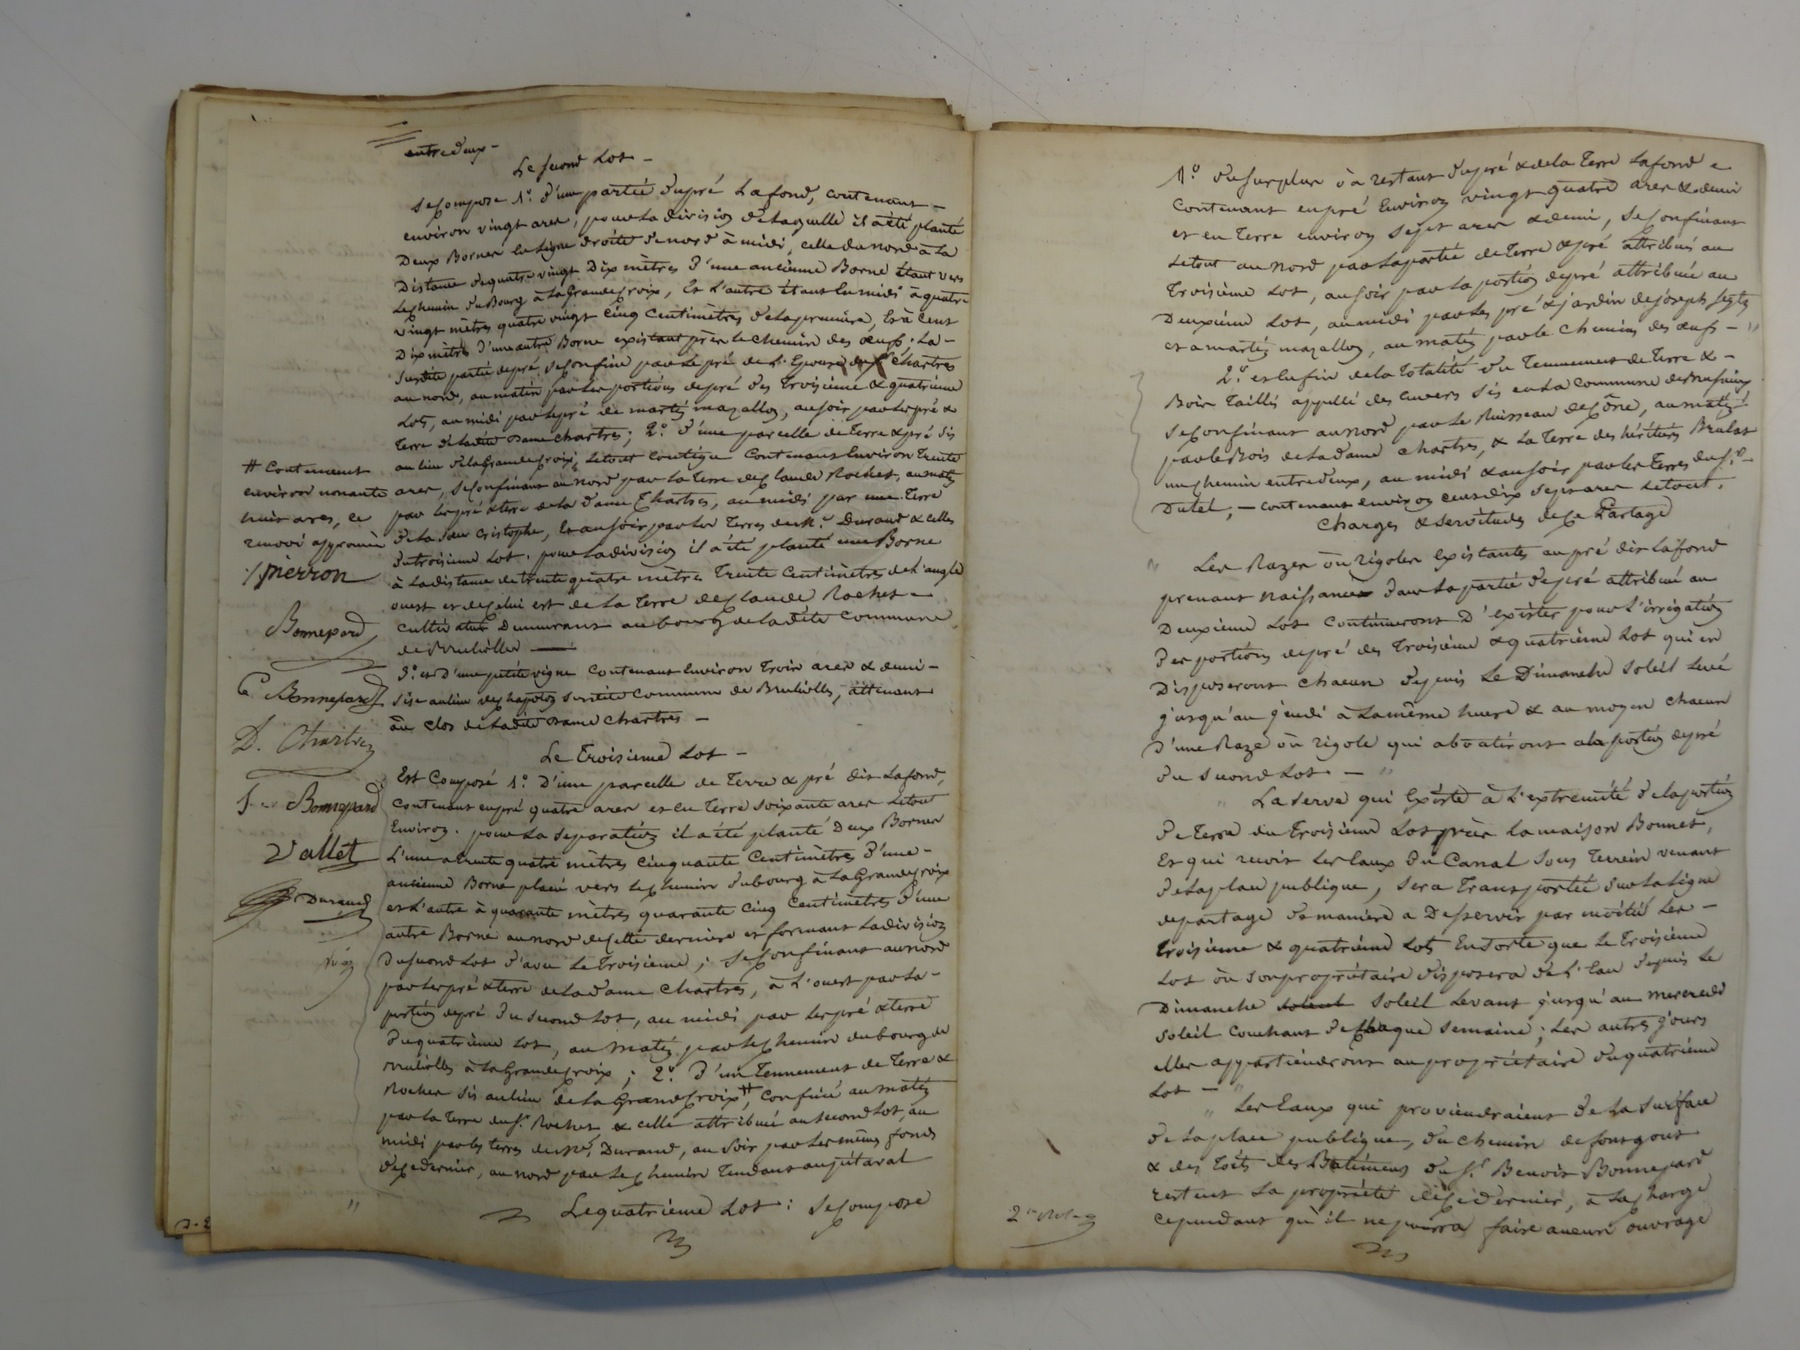 entredeux -
Le second Lot -
se Compose 1.° d'une partie du pré Lafond, contenant -
environ vingt ares, pour la division de laquelle il a été planté
Deux Bornes la ligne droite de nord à midi, celle du nord à la
Distance de quatre vingt Dix mètres d'une ancienne Borne étant vers
le chemin du Bourg à la Grande Croix, et l'autre étant en midi à quatre
vingt mètres quatre vingt cinq Centimètres de la première, et à cent
Dix mètres d'une autre Borne existant près le chemin des œufs; La -
susdite partie de pré se Confine par le pré de l'Epouse Chartres
au nord, au matin par les portions de pré des troisième & quatrième
Lots, au midi par le pré de martin mazallon, au soir par le pré &
terre de ladite Dame Chartres; 2.° d'une parcelle de terre & pré sis
au lieu de la Grande Croix, Le tout Contigu Contenant Environ Trente
ares, se Confinant au nord par la terre de Claude Rochet, au matin
par le pré & terre de la dame Chartres, au midi par une Terre
de la Cristophe, Et au soir par les Terres du M.r Durand & celles
du troisième Lot. pour la division il a été planté une Borne
à la distance de trente quatre mètres Trente Centimètres de l'angle
ouest et de celui est de la Terre de Claude Rochet -
Cultivateur Demeurant au bourg de ladite Commune
de Brulioles —
3.° et D'une petite vigne Contenant Environ Trois ares & demi -
sise au lieu de susdite Commune de Brulioles, attenant
au Clos de ladite Dame Chartres -
Le Troisieme Lot -
Est Composé 1.° D'une parcelle de Terre & pré dit Lafond,
Contenant en pré quatre ares et en Terre soixante ares Le tout
Environ. pour La separation il a été planté Deux Bornes
L'une a trente quatre mètres cinquante Centimètres d'une -
ancienne Borne placée vers le chemin du bourg à la Grande Croix
et L'autre à quarante mètres quarante cinq Centimètres d'une
autre Borne au nord de Cette dernière et formant La division
Du second Lot d'avec Le troisième; se Confinant au nord
par les pré & terre de la dame Chartres, à L'ouest par La -
portion de pré Du second Lot, au midi par les pré & terre
Du quatrième Lot, au matin par le chemin du bourg de
Brulioles à la Grande Croix; 2.° d'un Tennement de Terre &
Rocher sis au lieu de la Grande Croix #, Confiné au matin
par La Terre du S.r Rochet & celle attribuée au second Lot, au
midi par les terres du M.r Durand, au soir par les mêmes fonds
de ce dernier, au nord par le chemin Tendant au
Le quatrieme Lot : se Compose
# Contenant
environ nonante
huit ares, ce
renvoi approuvé
pierron
Bonnepard
C Bonnepard
D. Chartres
Bonnepard
Vallet
Durand
1.° du surplus ou restant du pré & de la Terre Lafond
Contenant en pré Environ vingt quatre ares & demi
et en Terre environ sept ares & demi, se Confinant
Le tout au nord par la partie de Terre & pré attribués au
Troisième Lot, au soir par la portion de pré attribuée au
Deuxième Lot, au midi par les pré & jardin de joseph
et a martin mazallon, au matin par le chemin des œufs -
2.° et Enfin de la Totalité du Tennement de Terre & -
Bois Taillis appellé des Envers sis en la Commune de
se Confinant au nord par Le Ruisseau de Cône, au matin
par le Bois de la dame Chartres, & La Terre des héritiers Brulat
un chemin entredeux, au midi & au soir par les Terres du S.r -
Dutel, - contenant environ cent dix sept ares Le tout.
Charges & servitudes de Ce Partage
" Les Razes ou rigoles Existantes au pré dit Lafond
prenant naissance dans La partie de pré attribuée au
Deuxième Lot Continueront D'exister pour L'irrigation
des portions de pré des Troisième & quatrième Lot qui en
Disposeront chacun depuis Le Dimanche soleil levé
jusqu'au jeudi à La même heure & au moyen chacun
d'une Raze ou rigole qui aboutiront a la portion de pré
du second Lot - "
La serve qui Existe à L'extremité de la portion
de Terre du Troisième Lot près La maison Bonnet,
Et qui reçoit Les Eaux du Canal sous Terrein venant
de la place publique, sera Transportée sur la ligne
de partage de manière a Desservir par moitié Les -
Troisième & quatrième Lots Ensorte que Le Troisième
Lot ou son propriétaire disposera de L'Eau depuis Le
Dimanche soleil Levant jusqu'au mercredi
soleil Couchant de chaque semaine; Les autres jours
elles appartiendront au propriétaire du quatrième
Lot - "
" Les Eaux qui proviendraient de La surface
de la place publique, du chemin de
& des Toits des Batimens du S.r Benoit Bonnepard
restent La propriété de Ce Dernier, à La Charge
cependant qu'il ne pourra faire aucun ouvrage